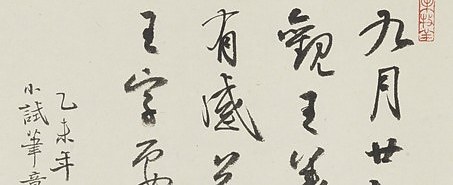 九月廿
觀王羲
有感
王字
乙未年
小試筆意